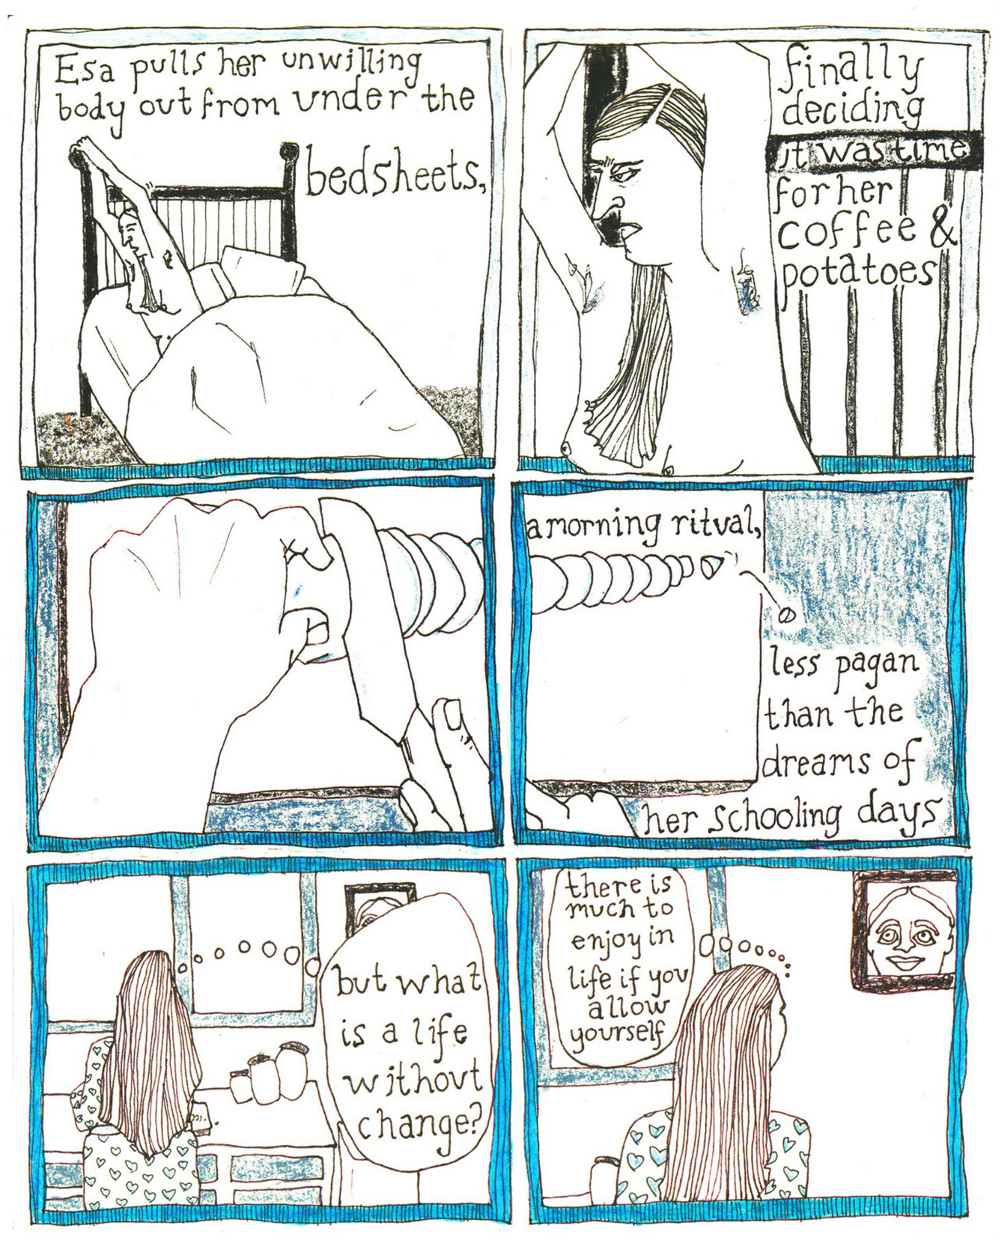 Esa pulls her unwilling
body out from under the
bedsheets,
finally
deciding
it was time
for her
coffee &
potatoes
a morning ritual,
less pagan
than the
dreams of
her schooling days
but what
is a life
without
change?
there is
much to
enjoy in
life if you
allow
yourself